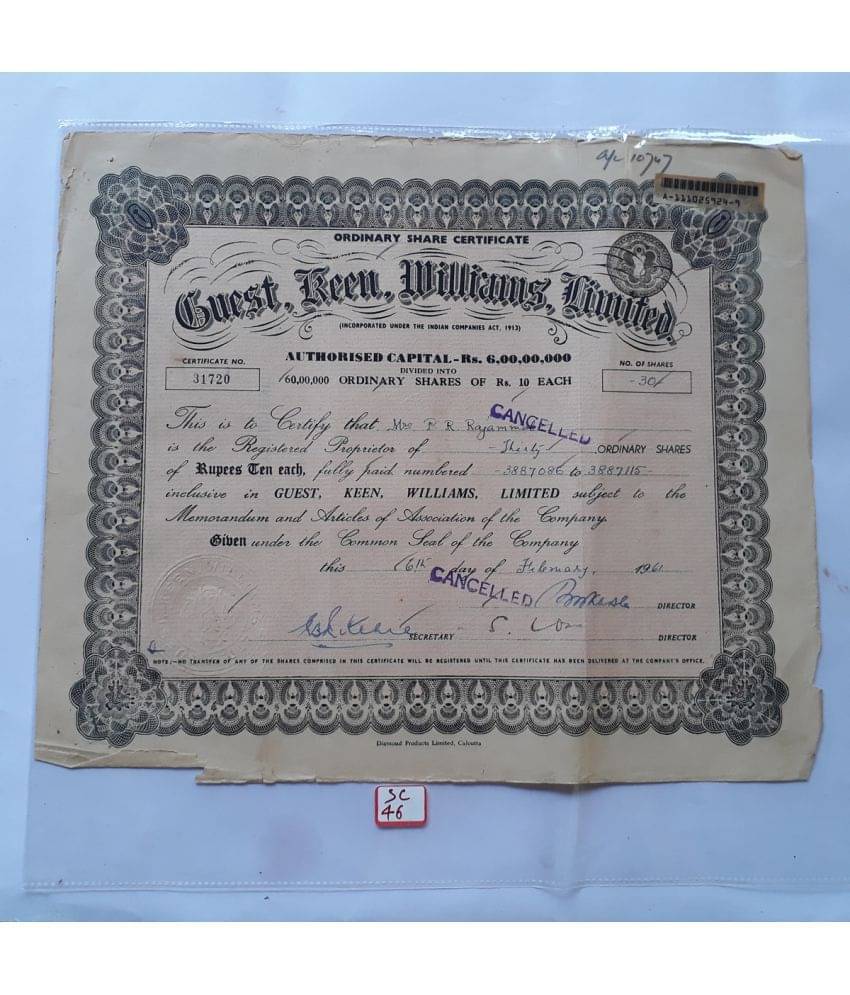 a/c 10747
A-111025924-9
ORDINARY SHARE CERTIFICATE
Guest, Keen, Williams, Limited.
(INCORPORATED UNDER THE INDIAN COMPANIES ACT, 1913)
AUTHORISED CAPITAL - Rs. 6,00,00,000
DIVIDED INTO
60,00,000 ORDINARY SHARES OF Rs. 10 EACH
CERTIFICATE NO.
31720
NO. OF SHARES
-30-
This is to Certify that Mrs P. R. Rajamm
CANCELLED
is the Registered Proprietor of - Thirty - ORDINARY SHARES
of Rupees Ten each, fully paid numbered -3887086 to 3887115-
inclusive in GUEST, KEEN, WILLIAMS, LIMITED subject to the
Memorandum and Articles of Association of the Company.
Given under the Common Seal of the Company
this 16th day of February, 1961
CANCELLED
DIRECTOR
SECRETARY
DIRECTOR
NOTE:—NO TRANSFER OF ANY OF THE SHARES COMPRISED IN THIS CERTIFICATE WILL BE REGISTERED UNTIL THIS CERTIFICATE HAS BEEN DELIVERED AT THE COMPANY'S OFFICE.
Diamond Products Limited, Calcutta
SC
46